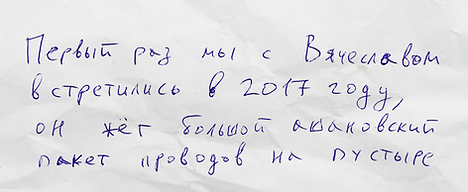 Первый раз мы с Вячеславом
встретились в 2017 году,
он жёг большой ашановский
пакет проводов на пустыре